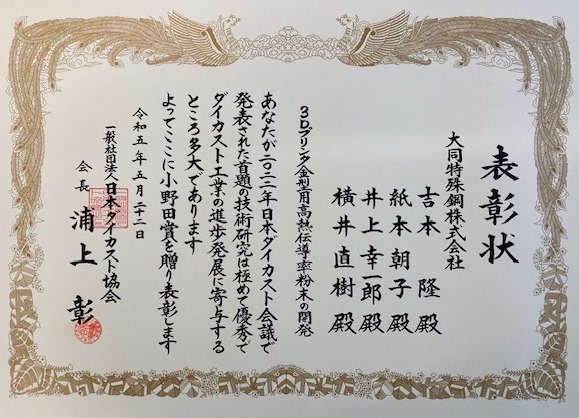 表彰状
大同特殊鋼株式会社
吉本 隆 殿
紙本朝子 殿
井上幸一郎 殿
横井直樹 殿
3Dプリンタ金型用高熱伝導率粉末の開発
あなたが二〇二二年日本ダイカスト会議で
発表された首題の技術研究は極めて優秀で
ダイカスト工業の進歩発展に寄与する
ところ多大であります
よってここに小野田賞を贈り表彰します
令和五年五月二十二日
一般社団法人日本ダイカスト協会
会長 浦上 彰